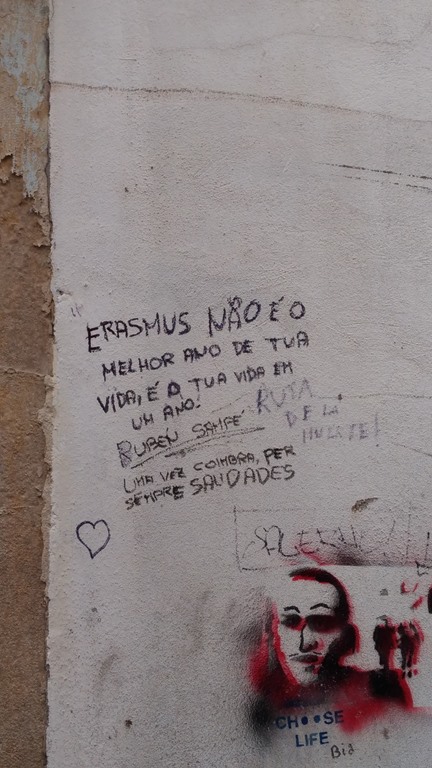 ERASMUS NÃO É O
MELHOR ANO DE TUA
VIDA, É A TUA VIDA EM
UM ANO!
RUBEN SAMPE
UMA VEZ COIMBRA, PER
SEMPRE SAUDADES
RUTA
DE LA
MUERTE!
CHOOSE
LIFE
Bia